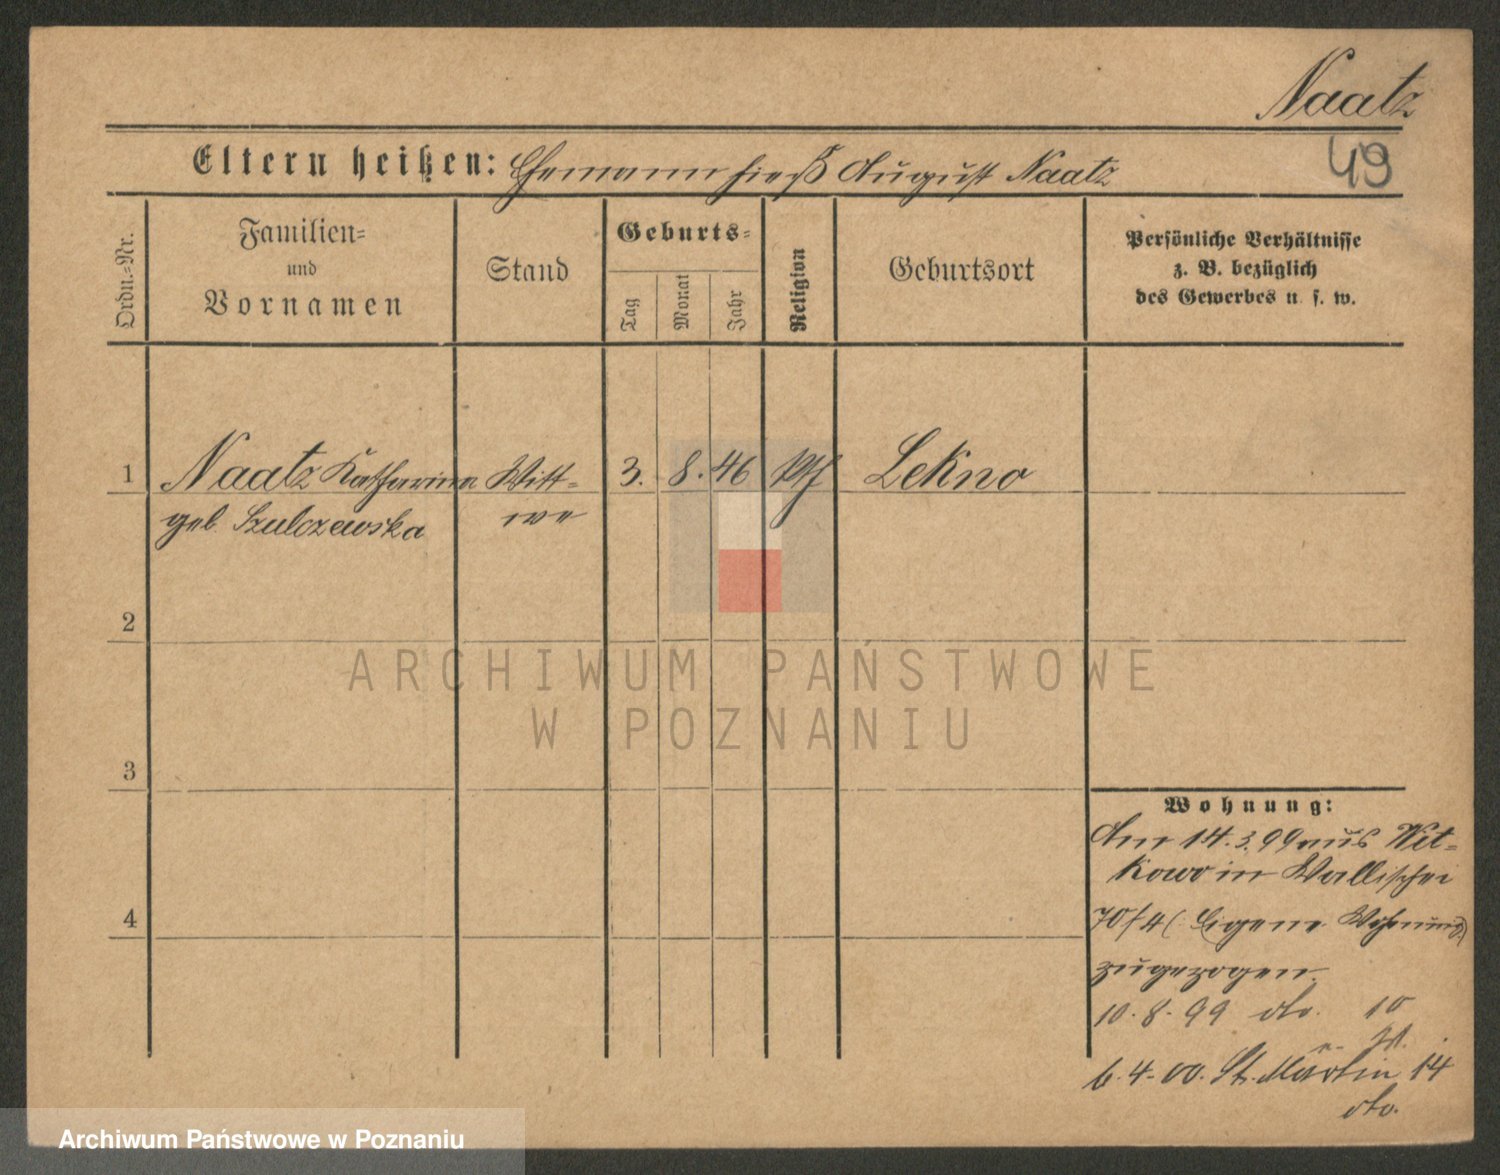 Naatz
49
Eltern heißen: Ehemann hieß August Naatz
Ordn.=Nr.
Familien=
und
Vornamen
Stand
Geburts=
Tag
Monat
Jahr
Religion
Geburtsort
Persönliche Verhältnisse
z. B. bezüglich
des Gewerbes u. s. w.
1 Naatz Katharina Witt= 3. 8. 46 kth Lekno
geb. Szulczewska we
2
3
4
Wohnung:
Am 14.3.99 aus Wit=
kowo in Wallischei
70/4 (Eigene Wohnung)
zugezogen.
10.8.99 dto. 10
6.4.00. St. Martin 14
dto.
ARCHIWUM PAŃSTWOWE
W POZNANIU
Archiwum Państwowe w Poznaniu